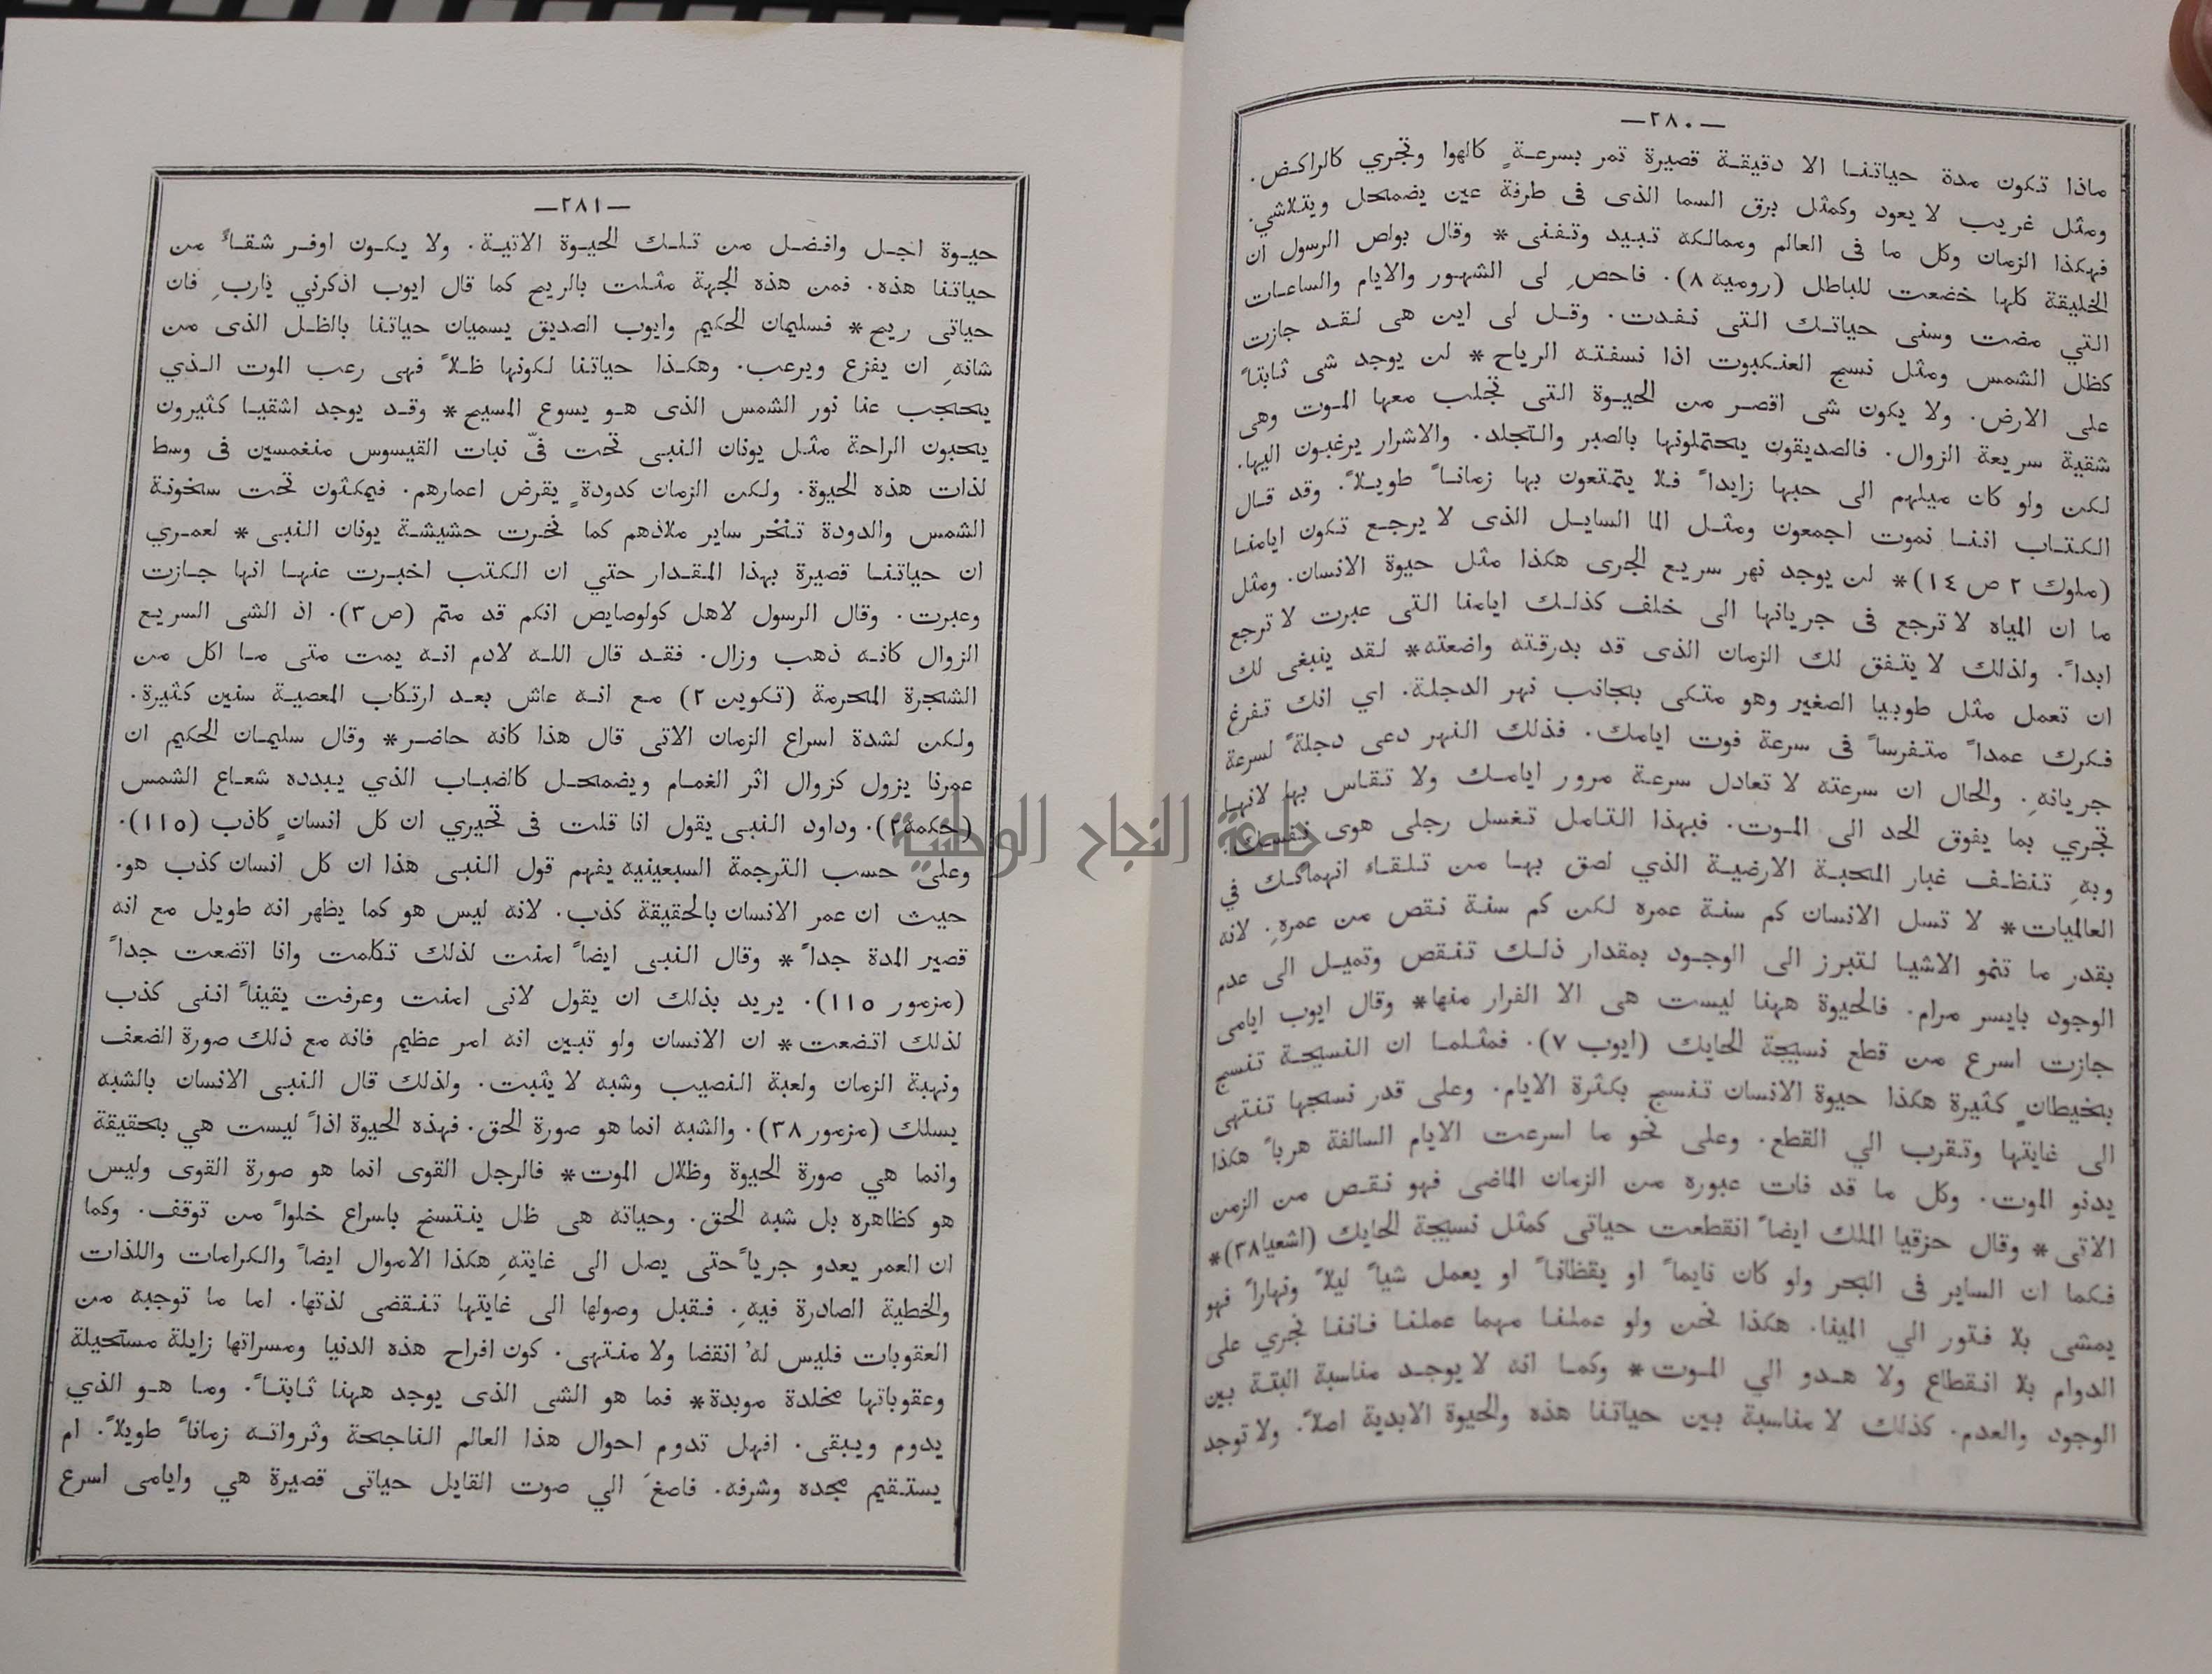 —٢٨٠—
ماذا تكون مدة حياتنا الا دقيقة قصيرة تمر بسرعةٍ كالهوا وتجري كالراكض.
ومثل غريب لا يعود وكمثل برق السما الذى فى طرفة عين يضمحل ويتلاشي.
فهكذا الزمان وكل ما فى العالم وممالكه تبيد وتفنى* وقال بولص الرسول ان
الخليقة كلها خضعت للباطل (روميه ٨). فاحصِ لى الشهور والايام والساعات
التي مضت وسنى حياتك التى نفدت. وقل لى اين هى لقد جازت
كظل الشمس ومثل نسج العنكبوت اذا نسفته الرياح* لن يوجد شى ثابتاً
على الارض. ولا يكون شى اقصر من الحيوة التى تجلب معها الموت وهى
شقية سريعة الزوال. فالصديقون يحتملونها بالصبر والتجلد. والاشرار يرغبون اليها.
لكن ولو كان ميلهم الى حبها زايداً فلا يتمتعون بها زماناً طويلاً. وقد قال
الكتاب اننا نموت اجمعون ومثل الما السايل الذى لا يرجع تكون ايامنا
(ملوك ٢ ص ١٤)* لن يوجد نهر سريع الجرى هكذا مثل حيوة الانسان. ومثل
ما ان المياه لا ترجع فى جريانها الى خلف كذلك ايامنا التى عبرت لا ترجع
ابداً. ولذلك لا يتفق لك الزمان الذى قد بدرقته واضعته* لقد ينبغى لك
ان تعمل مثل طوبيا الصغير وهو متكى بجانب نهر الدجلة. اي انك تفرغ
فكرك عمداً متفرساً فى سرعة فوت ايامك. فذلك النهر دعى دجلةً لسرعة
جريانهِ. والحال ان سرعته لا تعادل سرعة مرور ايامك ولا تقاس بها لانها
تجري بما يفوق الحد الى الموت. فبهذا التامل تغسل رجلى هوى نفسك.
وبهِ تنظف غبار المحبة الارضية الذي لصق بها من تلقاء انهماكك في
العالميات* لا تسل الانسان كم سنة عمره لكن كم سنة نقص من عمرهِ. لانه
بقدر ما تنمو الاشيا لتبرز الى الوجود بمقدار ذلك تنقص وتميل الى عدم
الوجود بايسر مرام. فالحيوة ههنا ليست هى الا الفرار منها* وقال ايوب ايامى
جازت اسرع من قطع نسيجة الحايك (ايوب ٧). فمثلما ان النسيجة تنسج
بخيطانٍ كثيرة هكذا حيوة الانسان تنسج بكثرة الايام. وعلى قدر نسجها تنتهى
الى غايتها وتقرب الي القطع. وعلى نحو ما اسرعت الايام السالفة هرباً هكذا
يدنو الموت. وكل ما قد فات عبوره من الزمان الماضى فهو نقص من الزمن
الاتى* وقال حزقيا الملك ايضاً انقطعت حياتى كمثل نسيجة الحايك (اشعيا٣٨)*
فكما ان الساير فى البحر ولو كان نايماً او يقظاناً او يعمل شياً ليلاً ونهاراً فهو
يمشى بلا فتور الي المينا. هكذا نحن ولو عملنا مهما عملنا فاننا نجري على
الدوام بلا انقطاع ولا هدو الي الموت* وكما انه لا يوجد مناسبة البتة بين
الوجود والعدم. كذلك لا مناسبة بين حياتنا هذه والحيوة الابدية اصلاً. ولا توجد
—٢٨١—
حيوة اجل وافضل من تلك الحيوة الاتية. ولا يكون اوفر شقاً من
حياتنا هذه. فمن هذه الجهة مثلت بالريح كما قال ايوب اذكرني ياربِ فان
حياتى ريح* فسليمان الحكيم وايوب الصديق يسميان حياتنا بالظل الذى من
شانهِ ان يفزع ويرعب. وهكذا حياتنا لكونها ظلاً فهى رعب الموت الذي
يحجب عنا نور الشمس الذى هو يسوع المسيح* وقد يوجد اشقيا كثيرون
يحبون الراحة مثل يونان النبى تحت فىّ نبات القيسوس منغمسين فى وسط
لذات هذه الحيوة. ولكن الزمان كدودةٍ يقرض اعمارهم. فيمكثون تحت سخونة
الشمس والدودة تنخر ساير ملاذهم كما نخرت حشيشة يونان النبى* لعمري
ان حياتنا قصيرة بهذا المقدار حتي ان الكتب اخبرت عنها انها جازت
وعبرت. وقال الرسول لاهل كولوصايص انكم قد متم (ص ٣). اذ الشى السريع
الزوال كانه ذهب وزال. فقد قال الله لادم انه يمت متى ما اكل من
الشجرة المحرمة (تكوين ٢) مع انه عاش بعد ارتكاب المعصية سنين كثيرة.
ولكن لشدة اسراع الزمان الاتى قال هذا كانه حاضر* وقال سليمان الحكيم ان
عمرنا يزول كزوال اثر الغمام ويضمحل كالضباب الذي يبدده شعاع الشمس
(حكمة٢). وداود النبى يقول انا قلت فى تحيري ان كل انسانٍ كاذب (١١٥).
وعلى حسب الترجمة السبعينيه يفهم قول النبى هذا ان كل انسان كذب هو.
حيث ان عمر الانسان بالحقيقة كذب. لانه ليس هو كما يظهر انه طويل مع انه
قصير المدة جداً* وقال النبى ايضاً امنت لذلك تكلمت وانا اتضعت جداً
(مزمور ١١٥). يريد بذلك ان يقول لانى امنت وعرفت يقيناً اننى كذب
لذلك اتضعت* ان الانسان ولو تبين انه امر عظيم فانه مع ذلك صورة الضعف
ونهبة الزمان ولعبة النصيب وشبه لا يثبت. ولذلك قال النبى الانسان بالشبه
يسلك (مزمور ٣٨). والشبه انما هو صورة الحق. فهذه الحيوة اذاً ليست هي بحقيقة
وانما هي صورة الحيوة وظلال الموت* فالرجل القوى انما هو صورة القوى وليس
هو كظاهره بل شبه الحق. وحياته هى ظل ينتسخ باسراع خلواً من توقف. وكما
ان العمر يعدو جرياً حتى يصل الى غايتهِ هكذا الاموال ايضاً والكرامات واللذات
والخطية الصادرة فيهِ. فقبل وصولها الى غايتها تنقضى لذتها. اما ما توجبه من
العقوبات فليس لهُ انقضا ولا منتهى. كون افراح هذه الدنيا ومسراتها زايلة مستحيلة
وعقوباتها مخلدة موبدة* فما هو الشى الذى يوجد ههنا ثابتاً. وما هو الذي
يدوم ويبقى. افهل تدوم احوال هذا العالم الناجحة وثرواته زماناً طويلاً. ام
يستقيم مجده وشرفه. فاصغَ الي صوت القايل حياتى قصيرة هي وايامى اسرع
جامعة النجاح الوطنية